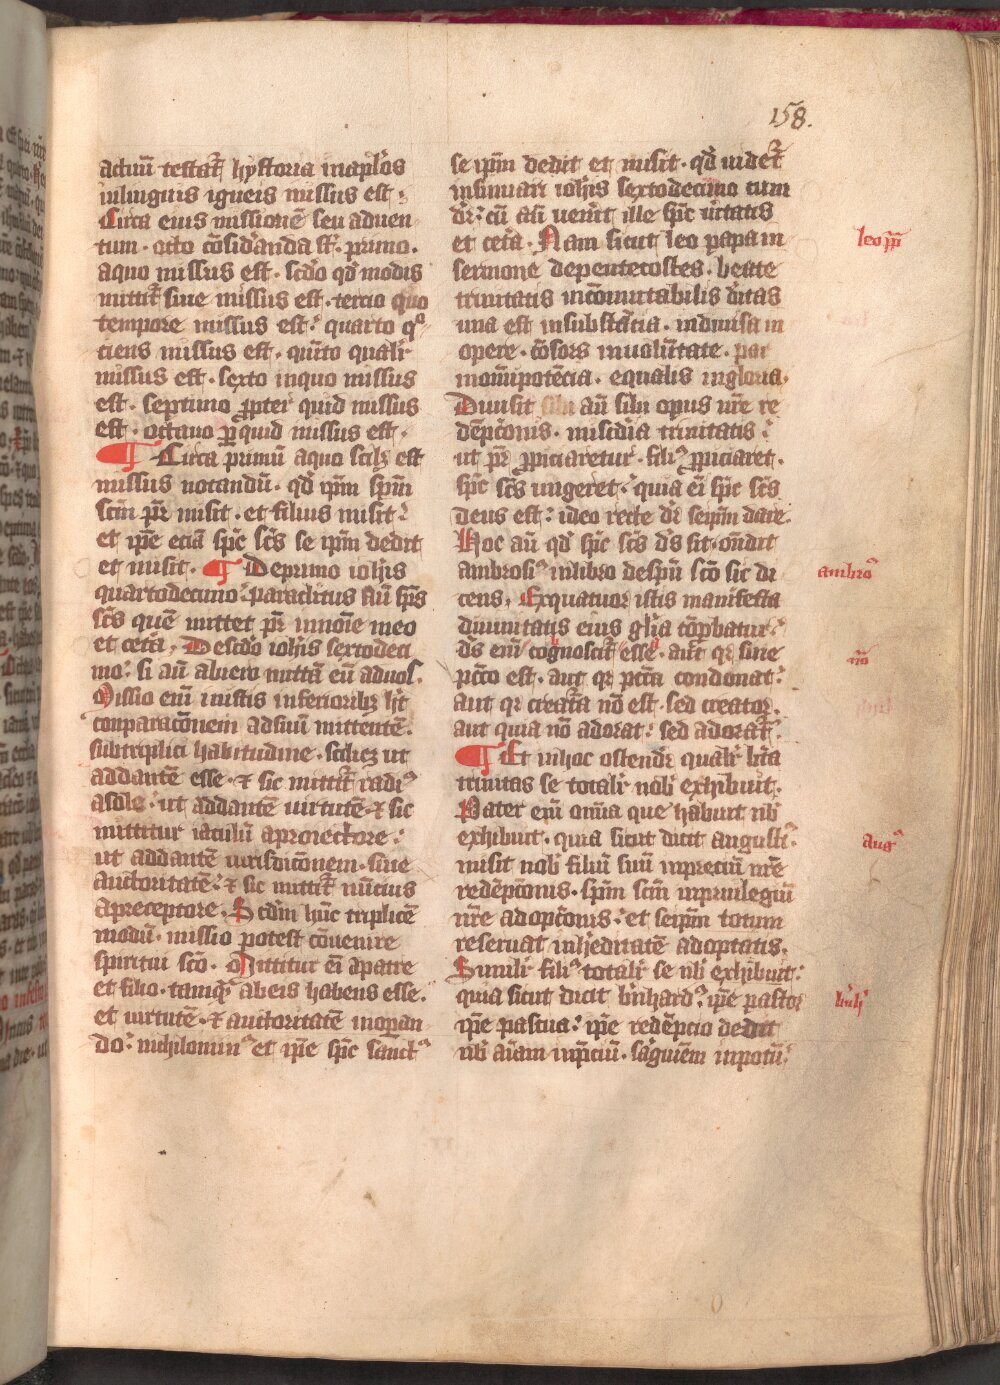 158.
actuū testat᷑ hystoria inapl̄os
inlinguis igneis missus est :
Circa eius missionē seu aduen
tum · octo cōsid'anda sūt · primo ·
aquo missus est · scd̄o qd̄ modis
mittit᷑ siue missus est · tercio quo
tempore missus est : quarto qͦ
ciens missus est · quīto qualit᷑
missus est · sexto inquo missus
est · septimo ꝓpter quid missus
est · octauo ꝑ quid missus est ·
¶ Circa primū aquo scilꝫ est
missus notandū · qd̄ ipm̄ spm̄
scm̄ pr̄ misit · et filius misit :
et ipē eciā spc̄ scs̄ se ipm̄ dedit
et misit · ¶ Deprimo ioh̄is
quartodecimo : paraclitus aūt spūs
scs̄ quē mittet pr̄ innoīe meo
et cetā , Descd̄o ioh̄is sextodeci
mo : si aū abiero mittā eū aduos .
Missio eīm inistis inferioribꝫ h̄it
comparacōnem adsuū mittentē .
subtriplici habitudine · scilicꝫ ut
addantē esse · ⁊ sic mittit᷑ radiꝰ
asole : ut addantē uirtutē · ⁊ sic
mittitur iaculū aproiectore :
ut addantē iurisdicōnem · siue
auctoritatē : ⁊ sic mittit᷑ nūcius
apreceptore , Scd̄m hūc triplicē
modū · missio potest cōuenire
spiritui scō · Mittitur ei apatre
et filio · tamqͣ abeis habens esse ·
et uirtutē · ⁊ auctoritatē inoꝑan
do : nichilominꝰ et ipē spc̄ sanctꝰ
se ipm̄ dedit et misit · qd̄ uidet᷑
insinuari ioh̄is sextodecimo cum
dr̄ : cū aūt uenīt ille spc̄ uītatis
et cetā · Nam sicut leo papa in
sermone depentecostes · beate
trinitatis incōmutabilis dītas
una est insubstātia · indiuisa in
opere · cōsors inuolūtate · par
inomipotēcia · equalis ingloria ·
Diuisit sibi aū sibi opus nr̄e re
dēpcōnis · miscd̄ia trinitatis :
ut pr̄ ꝓpiciaretur · filiꝰ ꝓpiciaret ·
spc̄ scs̄ ungeret : quia eī spc̄ scs̄
deus est : ideo recte dr̄ seipm̄ dare ·
Hoc aū qd̄ spc̄ scs̄ ds̄ sit · on̄dit
ambrosiꝰ inlibro despū scō sic di
cens , Exquatuor istis manifesta
diuinitatis eius gl̄ia cōꝓbatur :
ds̄ enī cognoscit᷑ esse · aut qr siue
pctō est · aut qr pctā condonat :
aut qr creatā nō est · sed creator .
aut quia nō adorat : sed adorat᷑ .
¶ Et inhoc ostendit qualit᷑ btā
trinitas se totalit᷑ nob̄ exhibuit .
Pater enī omīa que habuit nb̄
exhibuit · quia sicut dicit augustīꝰ
misit nob̄ filiū suū inpreciū nr̄e
redēpcōnis · spm̄ scm̄ inpriuilegiū
nr̄e adopcōnis : et seipm̄ totum
reseruat inh̄editatē adoptatis ·
Similit᷑ filiꝰ totalit᷑ se nb̄ exhibuit :
quia sicut dicit bn̄hardꝰ ipē pastor
ipē pascua : ipē redēpcio dedit
nb̄ aīam inp̄ciū · sāguīem inpotū :
leo pp̄
ambroꝰ
nō
augꝰ